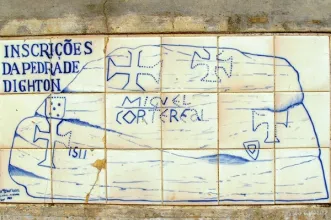 INSCRIÇÕES
DA PEDRA DE
DIGHTON
MIGUEL
CORTEREAL
1511